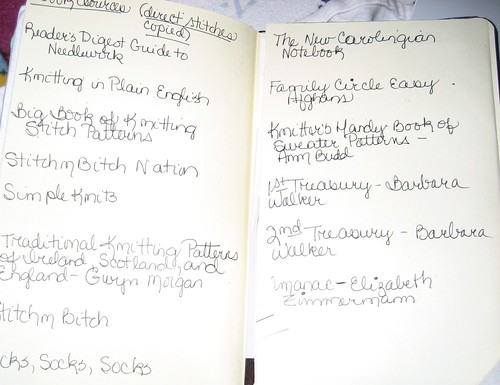 sources (direct stitches
copied)
Reader's Digest Guide to
Needlework
Knitting in Plain English
Big Book of Knitting
Stitch Patterns
Stitch n Bitch Nation
Simple Knits
Traditional Knitting Patterns
of Ireland, Scotland, and
England - Gwyn Morgan
titch n Bitch
cks, Socks, Socks
The New Carolingian
Notebook
Family Circle Easy
Afghans
Knitter's Handy Book of
Sweater Patterns -
Ann Budd
1st Treasury - Barbara
Walker
2nd Treasury - Barbara
Walker
lmanac - Elizabeth
Zimmermann